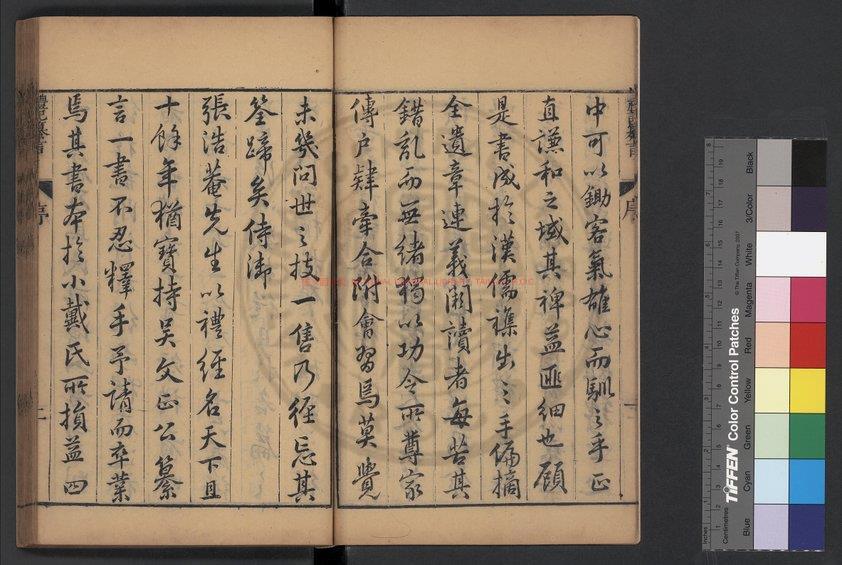 中可以鋤客氣雄心而馴之乎正
直謙和之域其裨益匪細也顧
是書成於漢儒襍出之手偏摘
全遺章連義溷讀者每苦其
錯亂而無緒獨以功令所尊家
傳戶肄牽合附會習焉莫覺
未幾問世之技一售乃徑忘其
筌蹄矣侍御
張浩菴先生以禮經名天下且
十餘年猶寶持吳文正公纂
言一書不忍釋手予請而卒業
焉其書本於小戴氏所損益四
序
序
TIFFEN Color Control Patches
© The Tiffen Company, 2007
Inches
Centimetres
Blue
Cyan
Green
Yellow
Red
Magenta
White
3/Color
Black